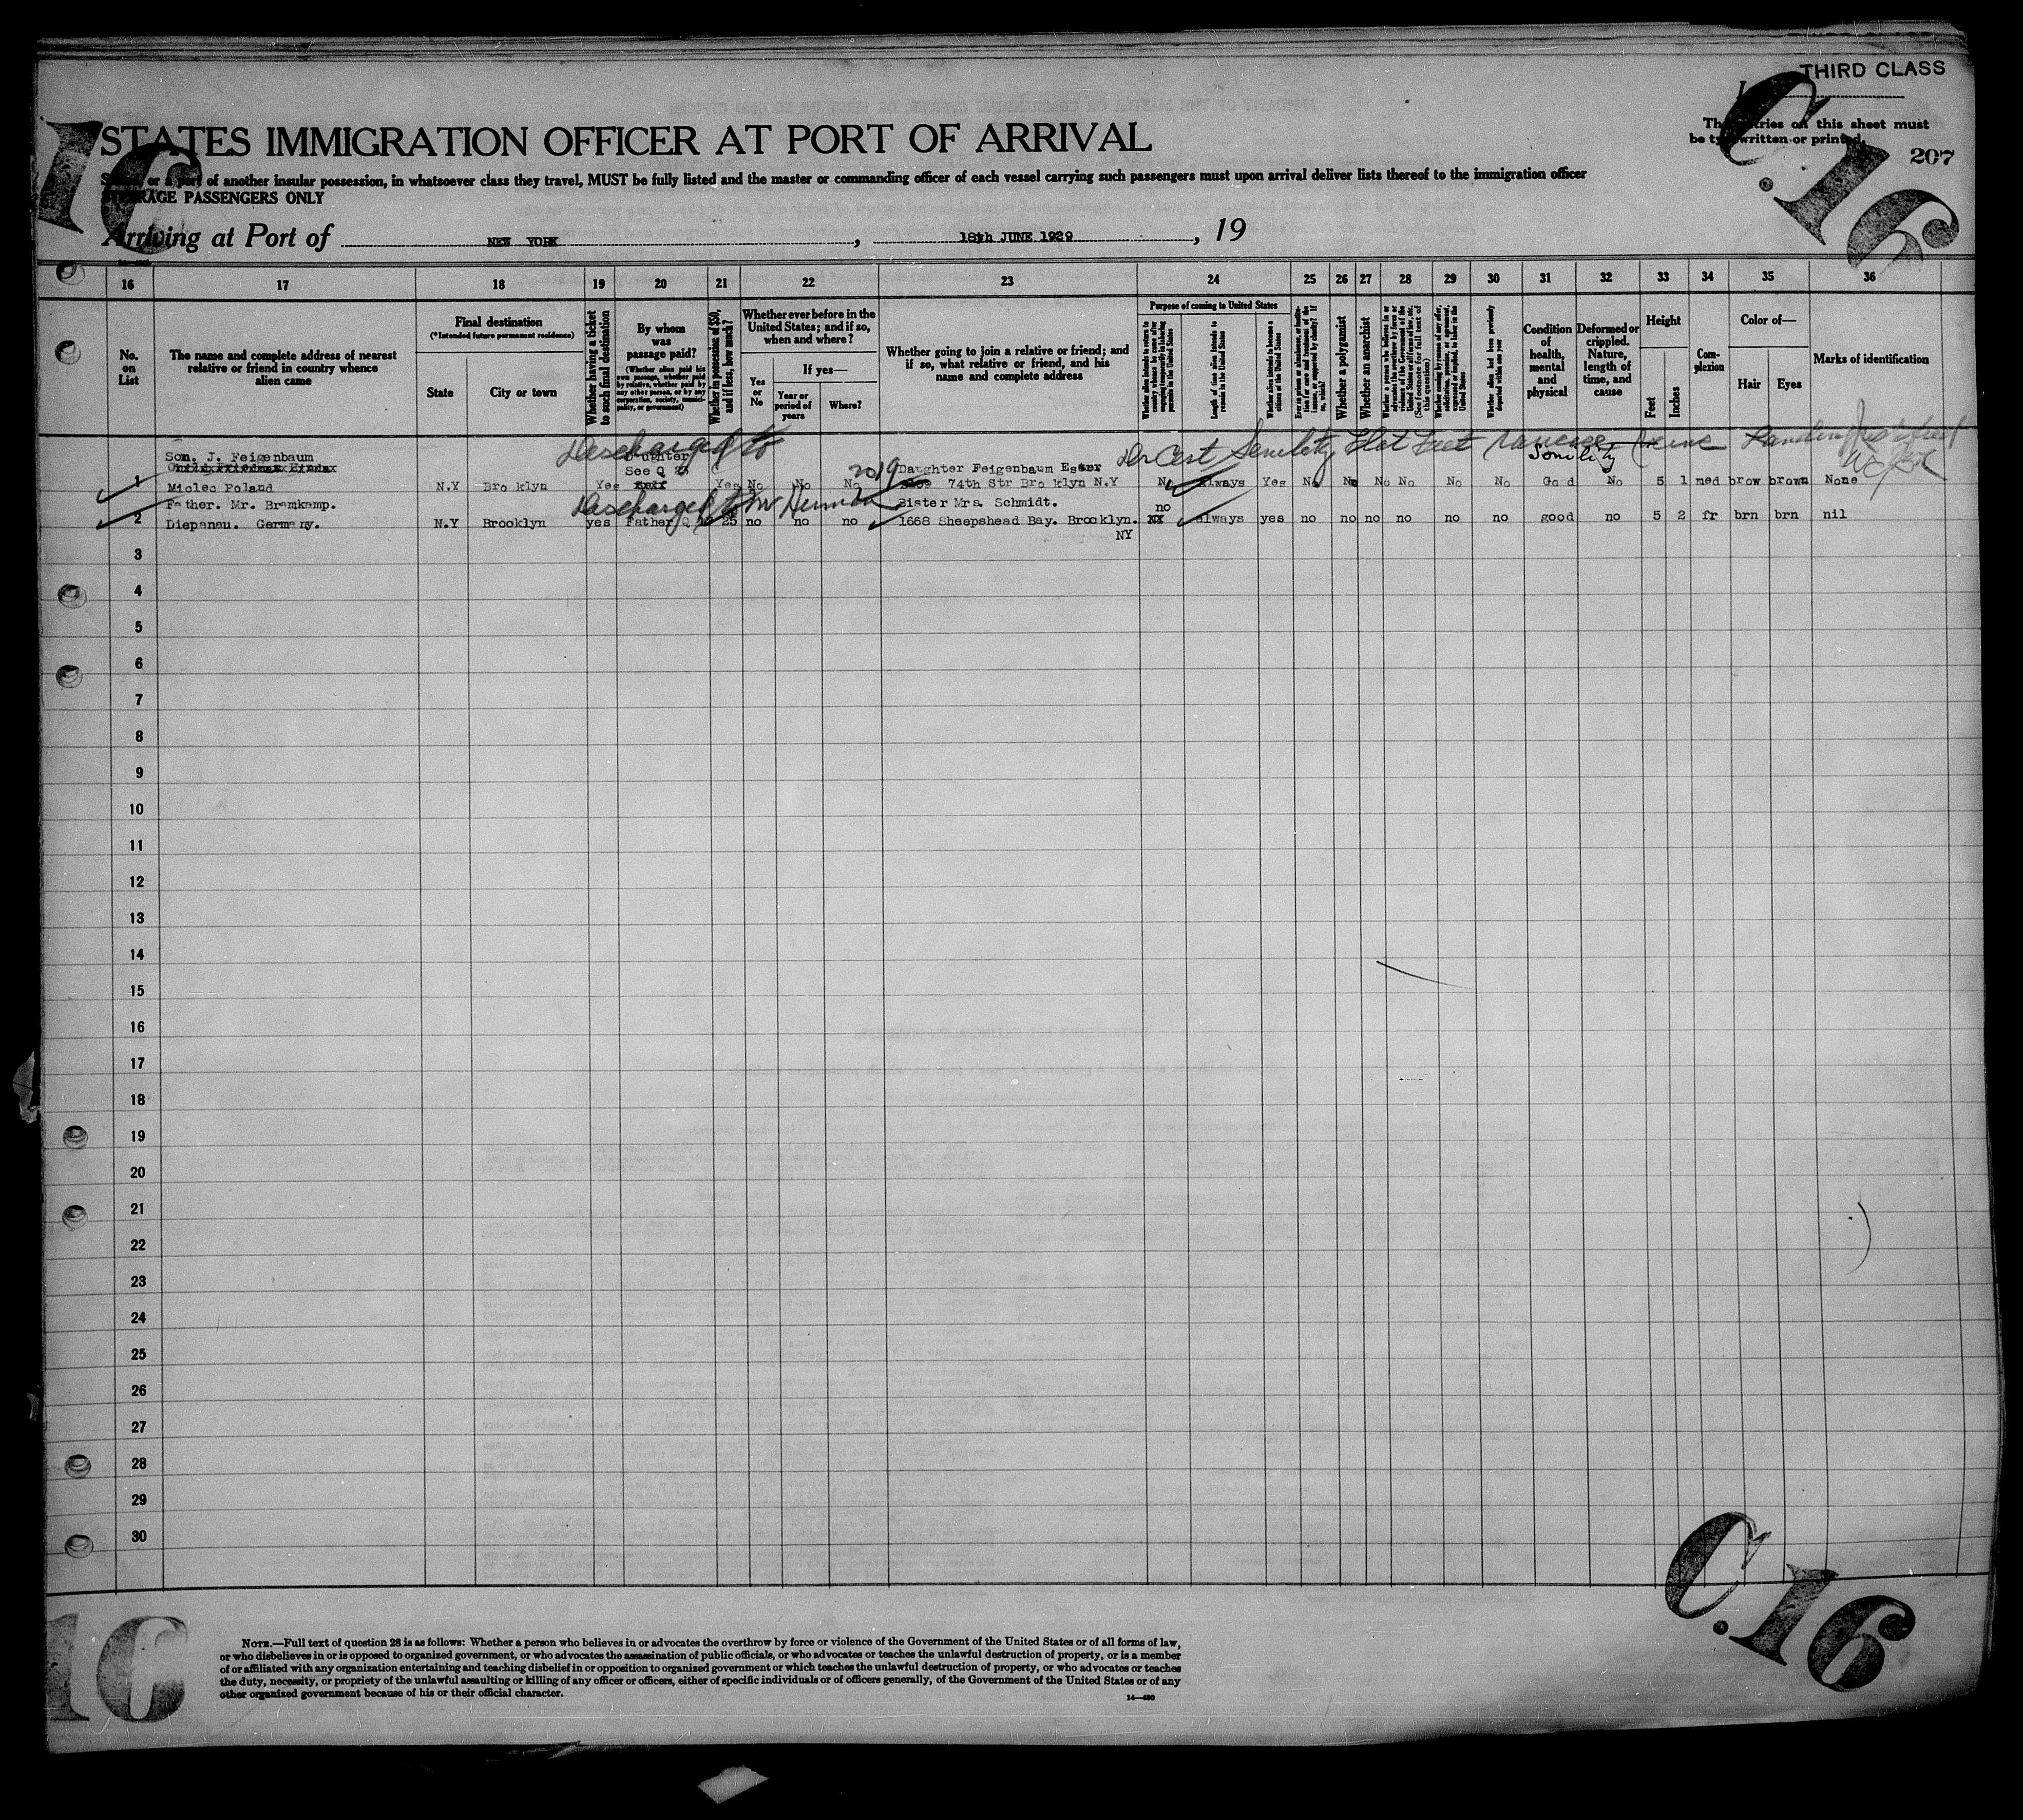 THIRD CLASS
C.16
16
STATES IMMIGRATION OFFICER AT PORT OF ARRIVAL
on this sheet must
be typewritten or printed.
207
of another insular possession, in whatsoever class they travel, MUST be fully listed and the master or commanding officer of each vessel carrying such passengers must upon arrival deliver lists thereof to the immigration officer
STEERAGE PASSENGERS ONLY
Arriving at Port of NEW YORK, 18th JUNE 1929, 19
16 17 18 19 20 21 22 23 24 25 26 27 28 29 30 31 32 33 34 35 36
No. on List
The name and complete address of nearest relative or friend in country whence alien came
Final destination
(*Intended future permanent residence)
State
City or town
Whether having a ticket to such final destination
By whom was passage paid?
(Whether alien paid his own passage, whether paid by relative, whether paid by any other person, or by any corporation, society, municipality, or government)
Whether in possession of $50, and if less, how much?
Whether ever before in the United States; and if so, when and where?
Yes or No
If yes—
Year or period of years
Where?
Whether going to join a relative or friend; and if so, what relative or friend, and his name and complete address
Purpose of coming to United States
Whether alien intends to return to country whence he came after engaging temporarily in laboring pursuits in the United States
Length of time alien intends to remain in the United States
Whether alien intends to become a citizen of the United States
Whether a polygamist
Whether an anarchist
(See footnote for full text of this question)
Whether alien had been previously deported within one year
Condition of health, mental and physical
Deformed or crippled. Nature, length of time, and cause
Height
Feet
Inches
Complexion
Color of—
Hair
Eyes
Marks of identification
Discharged to
Dr Cert Senility Flat Feet
Senility
Son. J. Feigenbaum
Daughter
See Q 23
2019 Daughter Feigenbaum Ester
1 Mielec Poland N.Y Bro klyn Yes Yes No No No 74th Str Bro klyn N.Y No always Yes No No No No No No Go d No 5 1 med brow brown None
Discharged to
Father. Mr. Bramkamp. Sister Mrs. Schmidt.
no
2 Diepenau. Germany. N.Y Brooklyn yes Father 25 no no no 1668 Sheepshead Bay. Brooklyn. always yes no no no no no no good no 5 2 fr brn brn nil
NY
3
4
5
6
7
8
9
10
11
12
13
14
15
16
17
18
19
20
21
22
23
24
25
26
27
28
29
30
C.16
16
NOTE.—Full text of question 28 is as follows: Whether a person who believes in or advocates the overthrow by force or violence of the Government of the United States or of all forms of law,
or who disbelieves in or is opposed to organized government, or who advocates the assassination of public officials, or who advocates or teaches the unlawful destruction of property, or is a member
of or affiliated with any organization entertaining and teaching disbelief in or opposition to organized government or which teaches the unlawful destruction of property, or who advocates or teaches
the duty, necessity, or propriety of the unlawful assaulting or killing of any officer or officers, either of specific individuals or of officers generally, of the Government of the United States or of any
other organized government because of his or their official character.
14—480